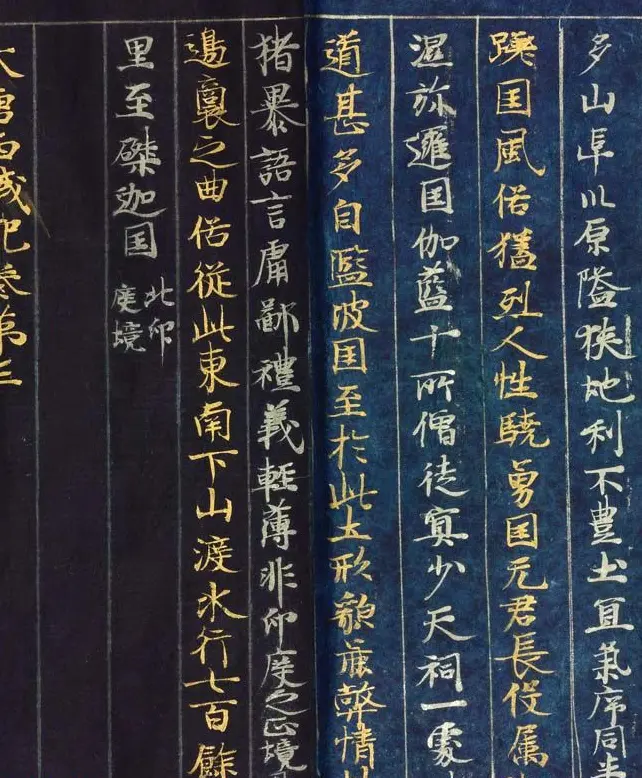 多山阜川原隘狹地利不豊土宜氣序同半
蹉国風俗猛烈人性驍勇国无君長伇属
湿弥邏国伽藍十所僧徒寡少天祠一處
道甚多自監波国至於此土形貌麁弊情性
猪暴語言庸鄙禮義輕薄非仰度之正境
邊裔之曲俗從此東南下山渡水行七百餘
里至磔迦国
北仰
度境
大唐西域記卷第三